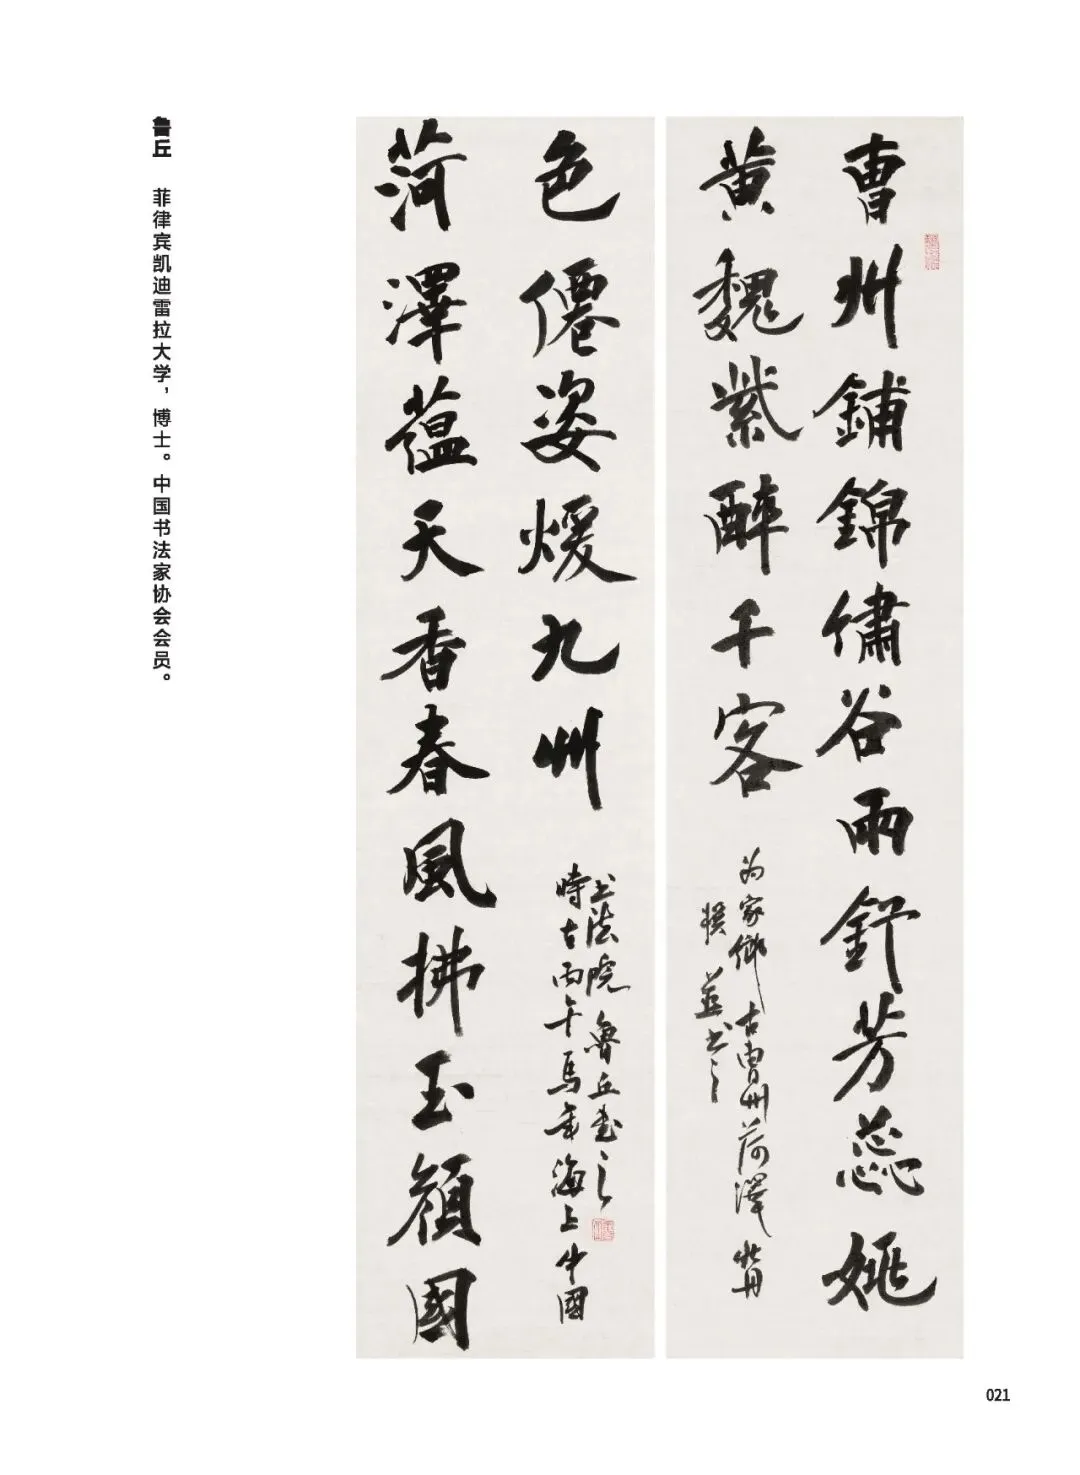 曹州鋪錦繡谷雨舒芳蕊姚
黄魏紫醉千客
为家鄉古曹州菏澤牡丹
撰並书之
菏澤蘊天香春風拂玉顔國
色僊姿煖九州
時在丙午馬年海上中國
书法院魯丘书之
鲁丘 菲律宾凯迪雷拉大学，博士。中国书法家协会会员。
021